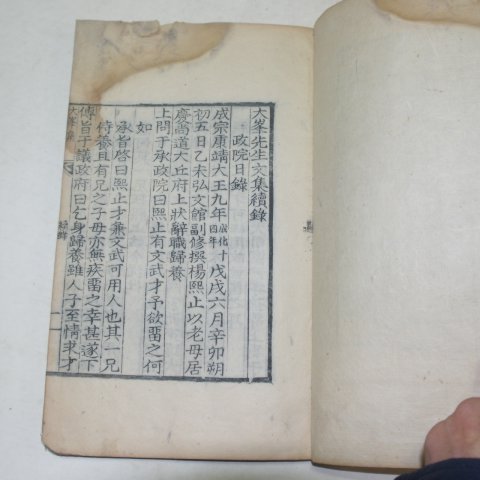 大峯先生文集續錄
政院日錄
成宗康靖大王九年成化十四年戊戌六月辛卯朔
初五日乙未弘文館副修撰楊熙止以老母居
慶尙道大丘府上狀辭職歸養
上問于承政院曰熙止有文武才予欲留之何
如
承旨啓曰熙止才兼文武可用人也其一兄
侍養且有兄之子母亦無疾留之幸甚遂下
傳旨于議政府曰乞身歸養雖人子至情求才
大峯集
續錄
一